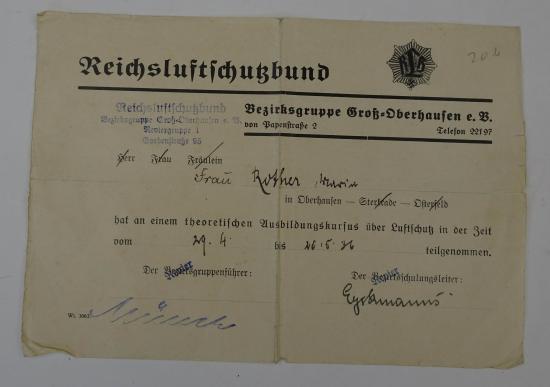 206
Reichsluftschutzbund
RLB
Reichsluftschutzbund
Bezirksgruppe Groß-Oberhausen e. V.
Reviergruppe 1
Bezirksgruppe Groß-Oberhausen e. V.
von Papenstraße 2 Telefon 22197
Herr Frau Fräulein
Frau Rother, Maria
in Oberhausen — Sterkrade — Osterfeld
hat an einem theoretischen Ausbildungskursus über Luftschutz in der Zeit
vom 29. 4. bis 26. 5. 36 teilgenommen.
Der Revier Bezirksgruppenführer: Der Revier Bezirksschulungsleiter: